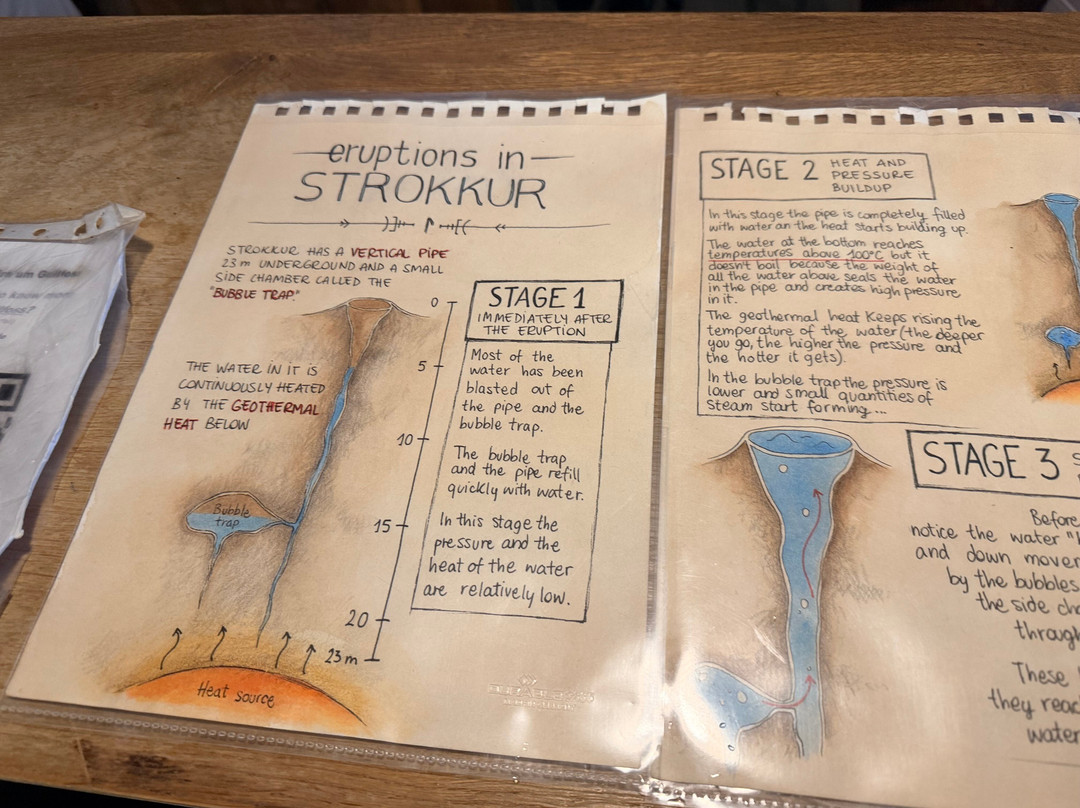 eruptions in
STROKKUR
STROKKUR HAS A VERTICAL PIPE
23 m UNDERGROUND AND A SMALL
SIDE CHAMBER CALLED THE
"BUBBLE TRAP."
THE WATER IN IT IS
CONTINUOUSLY HEATED
BY THE GEOTHERMAL
HEAT BELOW
0
5
10
15
20
23 m
Bubble
trap
Heat source
STAGE 1
IMMEDIATELY AFTER
THE ERUPTION
Most of the
water has been
blasted out of
the pipe and the
bubble trap.
The bubble trap
and the pipe refill
quickly with water.
In this stage the
pressure and the
heat of the water
are relatively low.
STAGE 2
HEAT AND
PRESSURE
BUILDUP
In this stage the pipe is completely filled
with water an the heat starts building up.
The water at the bottom reaches
temperatures above 100°C but it
doesn't boil because the weight of
all the water above seals the water
in the pipe and creates high pressure
in it.
The geothermal heat keeps rising the
temperature of the water (the deeper
you go, the higher the pressure and
the hotter it gets).
In the bubble trap the pressure is
lower and small quantities of
steam start forming...
STAGE 3
Before
notice the water
and down
by the bubbles
the side
These
they
water